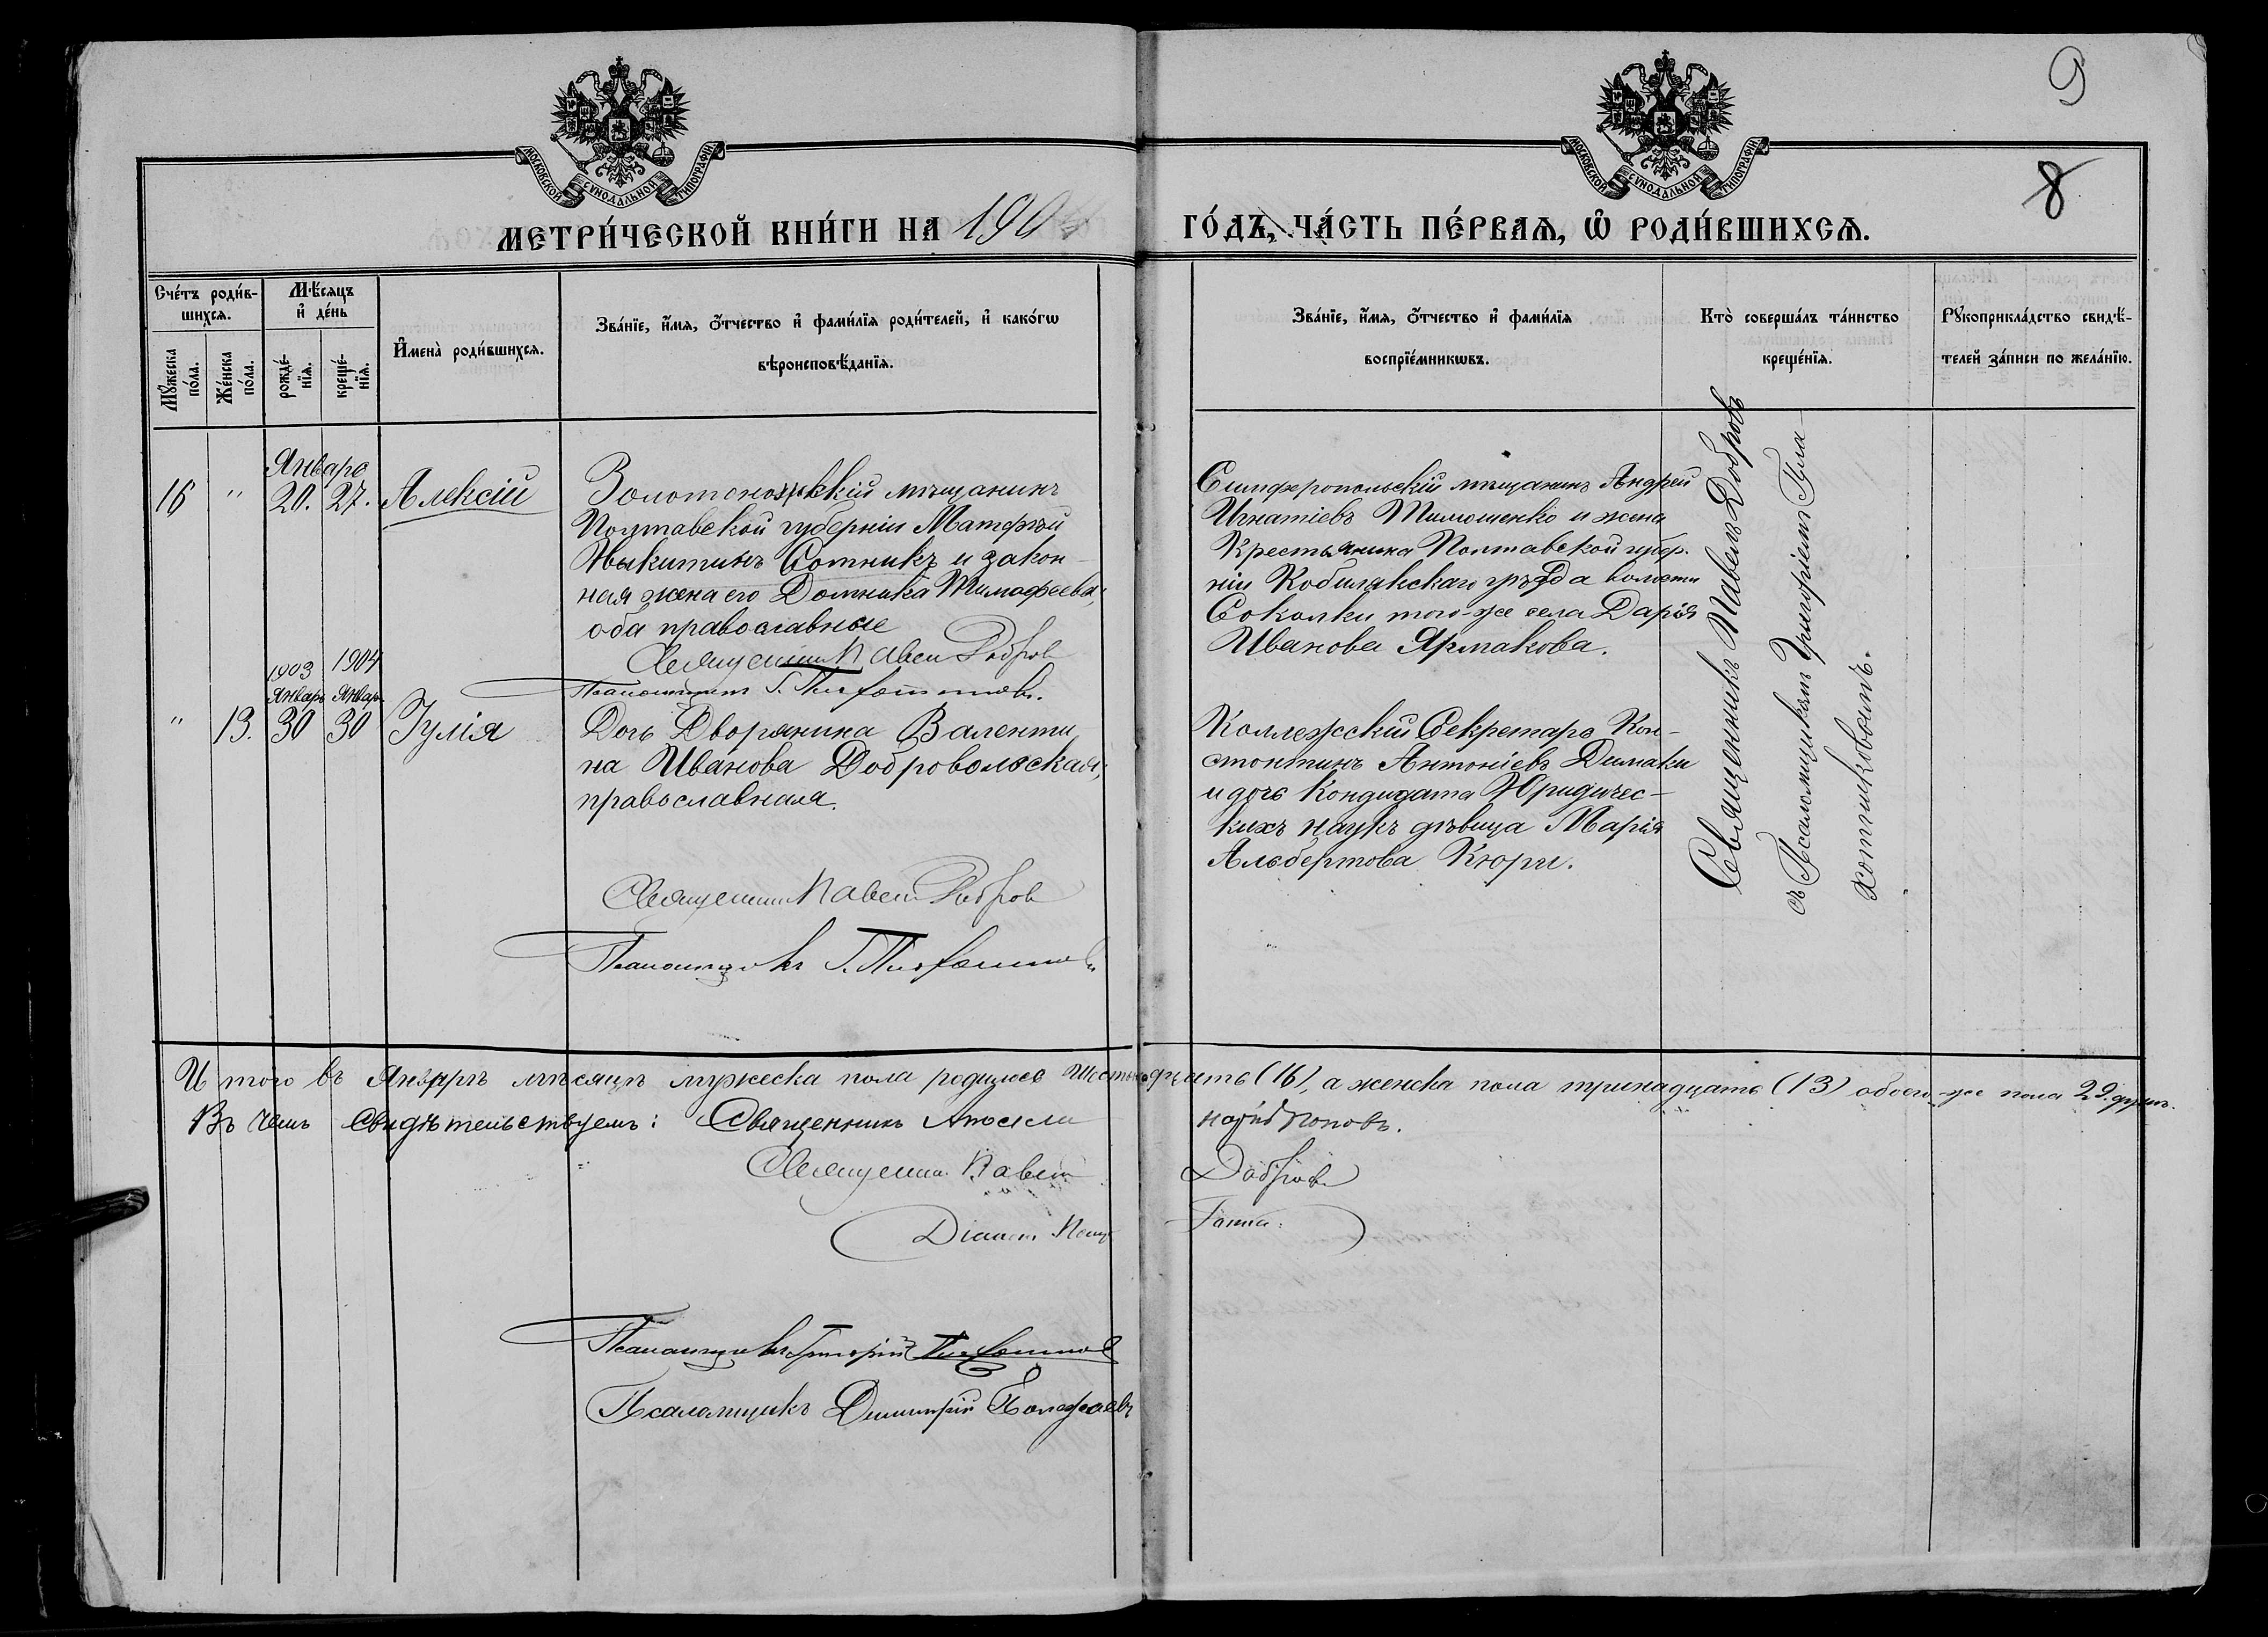 9
8
МОСКОВСКОЙ СѴНОДАЛЬНОЙ ТИПОГРАФІИ
МОСКОВСКОЙ СѴНОДАЛЬНОЙ ТИПОГРАФІИ
МЕТРИ́ЧЕСКОЙ КНИ́ГИ НА 1904
ГО́ДЪ, ЧА́СТЬ ПЕ́РВАѦ, Ѡ҆ РОДИ́ВШИХСѦ.
Сче́тъ роди́в-
шихсѧ.
Мꙋ́жеска по́ла.
Же́нска по́ла.
Мѣ́сѧцъ
и҆ де́нь
рожде́-
нїѧ.
креще́-
нїѧ.
И҆мена̀ роди́вшихсѧ.
Зва́нїе, и҆́мѧ, ѻ҆́тчество и҆ фами́лїѧ роди́телей, и҆ како́гѡ
вѣроисповѣ́данїѧ.
Зва́нїе, и҆́мѧ, ѻ҆́тчество и҆ фами́лїѧ
воспрїе́мникѡвъ.
Кто̀ соверша́лъ та́инство
креще́нїѧ.
Рꙋкоприкла́дство свидѣ́-
телей за́писи по жела́нїю.
Январь
16 " 20. 27. Алексій
Золотоношскій мѣщанинъ
Полтавской губерніи Матфѣй
Никитинъ Сотникъ и закон-
ная жена его Домника Тимофеева,
оба православные
Священникъ Павелъ Добров
Псаломщикъ Г.
Симферопольскій мѣщанинъ Андрей
Игнатіевъ Тимошенко и жена
Крестьянина Полтавской губер-
ніи Кобилякскаго уѣзда волости
Соколки того-же села Дарія
Иванова Ярмакова.
Священникъ Павелъ Добровъ
съ Псаломщикомъ Григоріемъ Гула
хотниковымъ.
1903 1904
Январь Январ
" 13. 30 30 Іулія
Дочь Дворянина Валенти
на Иванова Добровольская,
православная.
Священникъ Павелъ Добров
Псаломщикъ Г.
Коллежскій Секретарь Кон-
стонтинъ Антоніевъ Димаки
и дочь Кондидата Юридичес-
кихъ наукъ дѣвица Марія
Альбертова Кюри.
И того въ Январѣ мѣсяцѣ мужеска пола родилось Шестнадцать (16), а женска пола тринадцать (13) обоего-же пола 29. душъ.
Въ чемъ свидѣтельствуемъ: Священникъ Попов.
Священник Павелъ Добров
Діаконъ
Псаломщикъ Григорій
Псаломщикъ Димитрій